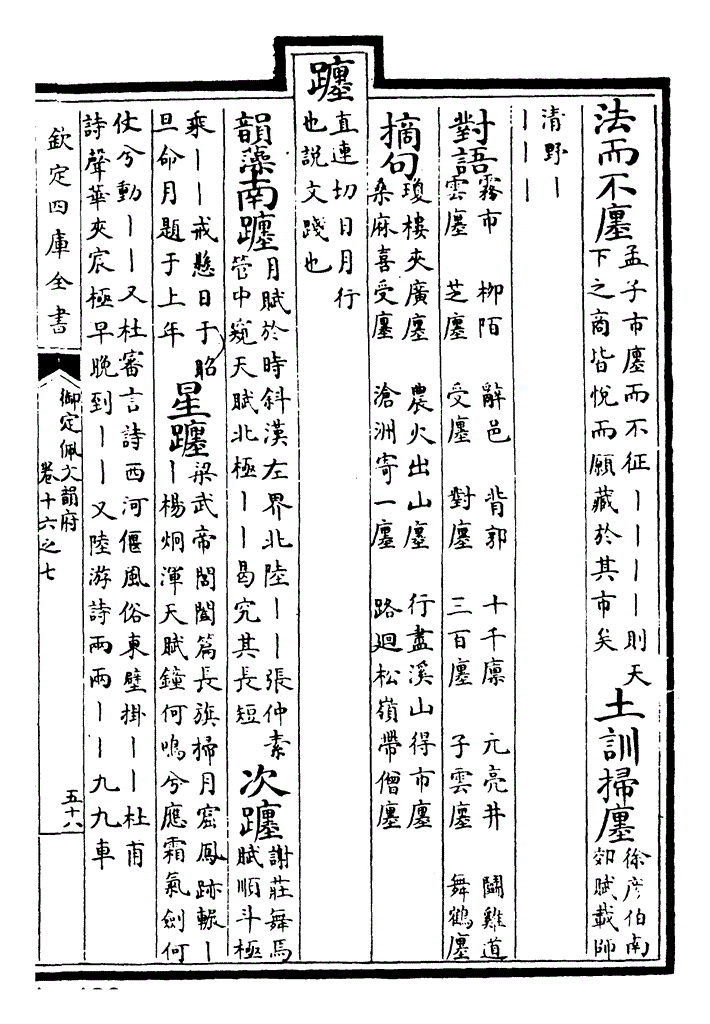 法而不廛孟子市廛而不征丨丨丨丨則天
下之商皆悅而願藏於其市矣
土訓掃廛徐彦伯南
郊賦載師
清野丨
丨丨丨
對語霧市 柳陌 辭邑 背郭 十千廛 元亮井 鬬雞道
雲廛 芝廛 受廛 對廛 三百廛 子雲廛 舞鶴廛
摘句瓊樓夾廣廛 農火出山廛 行盡溪山得市廛
桑麻喜受廛 滄洲寄一廛 路廻松嶺帶僧廛
躔直連切日月行
也説文踐也
韻藻南躔月賦於時斜漢左界北陸丨丨張仲素
管中窺天賦北極丨丨曷究其長短
次躔謝莊舞馬
賦順斗極
乘丨丨戒懸日于昭
旦命月題于上年
星躔梁武帝閶闔篇長旗掃月窟鳳跡輾丨
丨楊炯渾天賦鐘何鳴兮應霜氣劍何
伏兮動丨丨又杜審言詩西河偃風俗東壁掛丨丨杜甫
詩聲華夾宸極早晚到丨丨又陸游詩兩兩丨丨九九車
欽定四庫全書
御定佩文韻府
卷十六之七
五十八